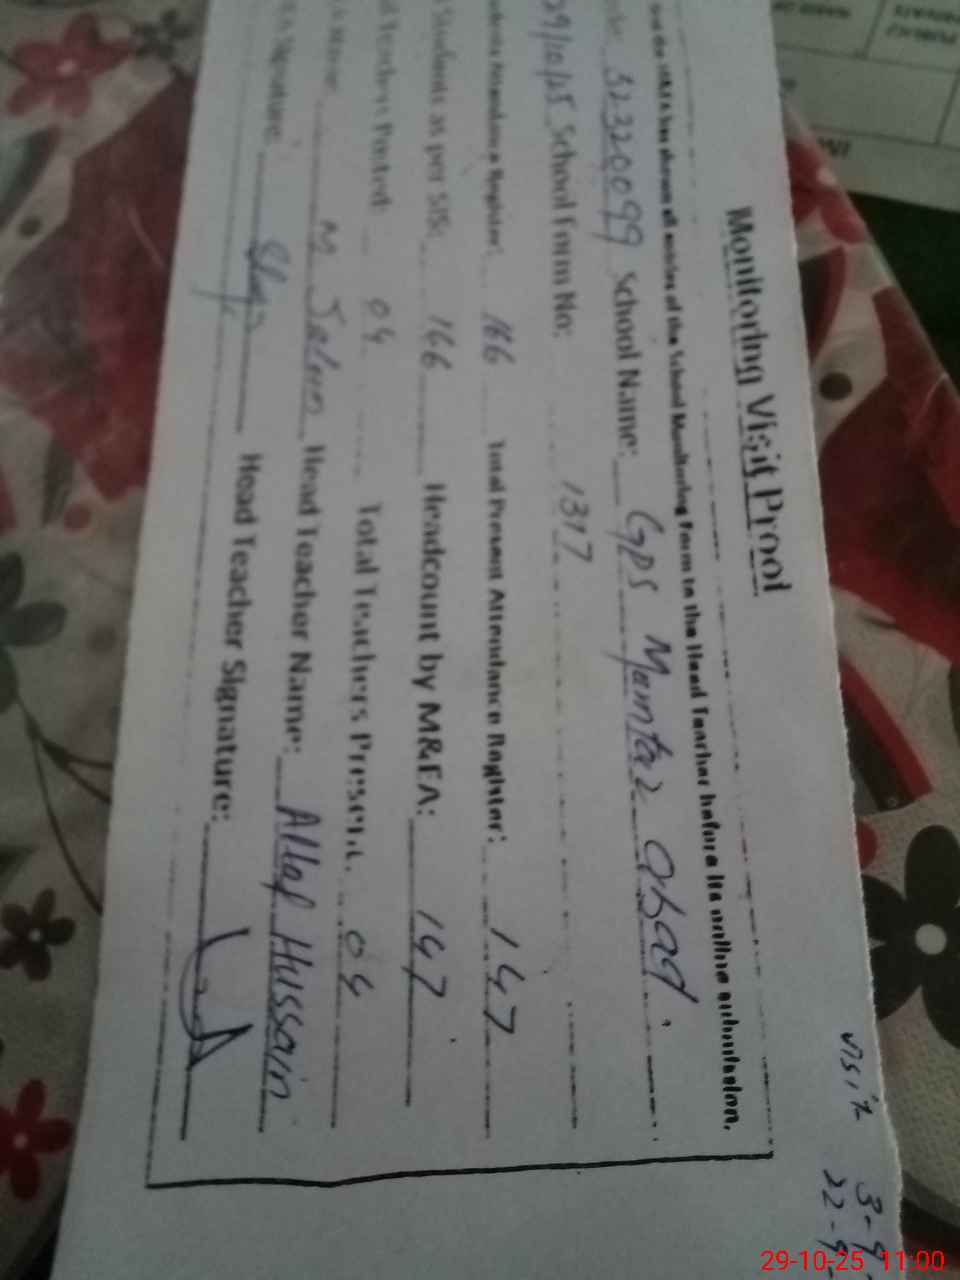 Monitoring Visit Proof
of the School Monitoring Form to the Head Teacher before its online submission.
32320099 School Name: GPS Mumtaz abad
29/10/25 School Form No: 1317
Attendance Register: 166 Total Present Attendance Register: 147
Students as per SIS: 166 Headcount by M&EA: 147
Teachers Posted: 04 Total Teachers Present: 04
Head Teacher Name: Altaf Hussain
Signature: Head Teacher Signature:
visit 3-9
22-9-
29-10-25 11:00